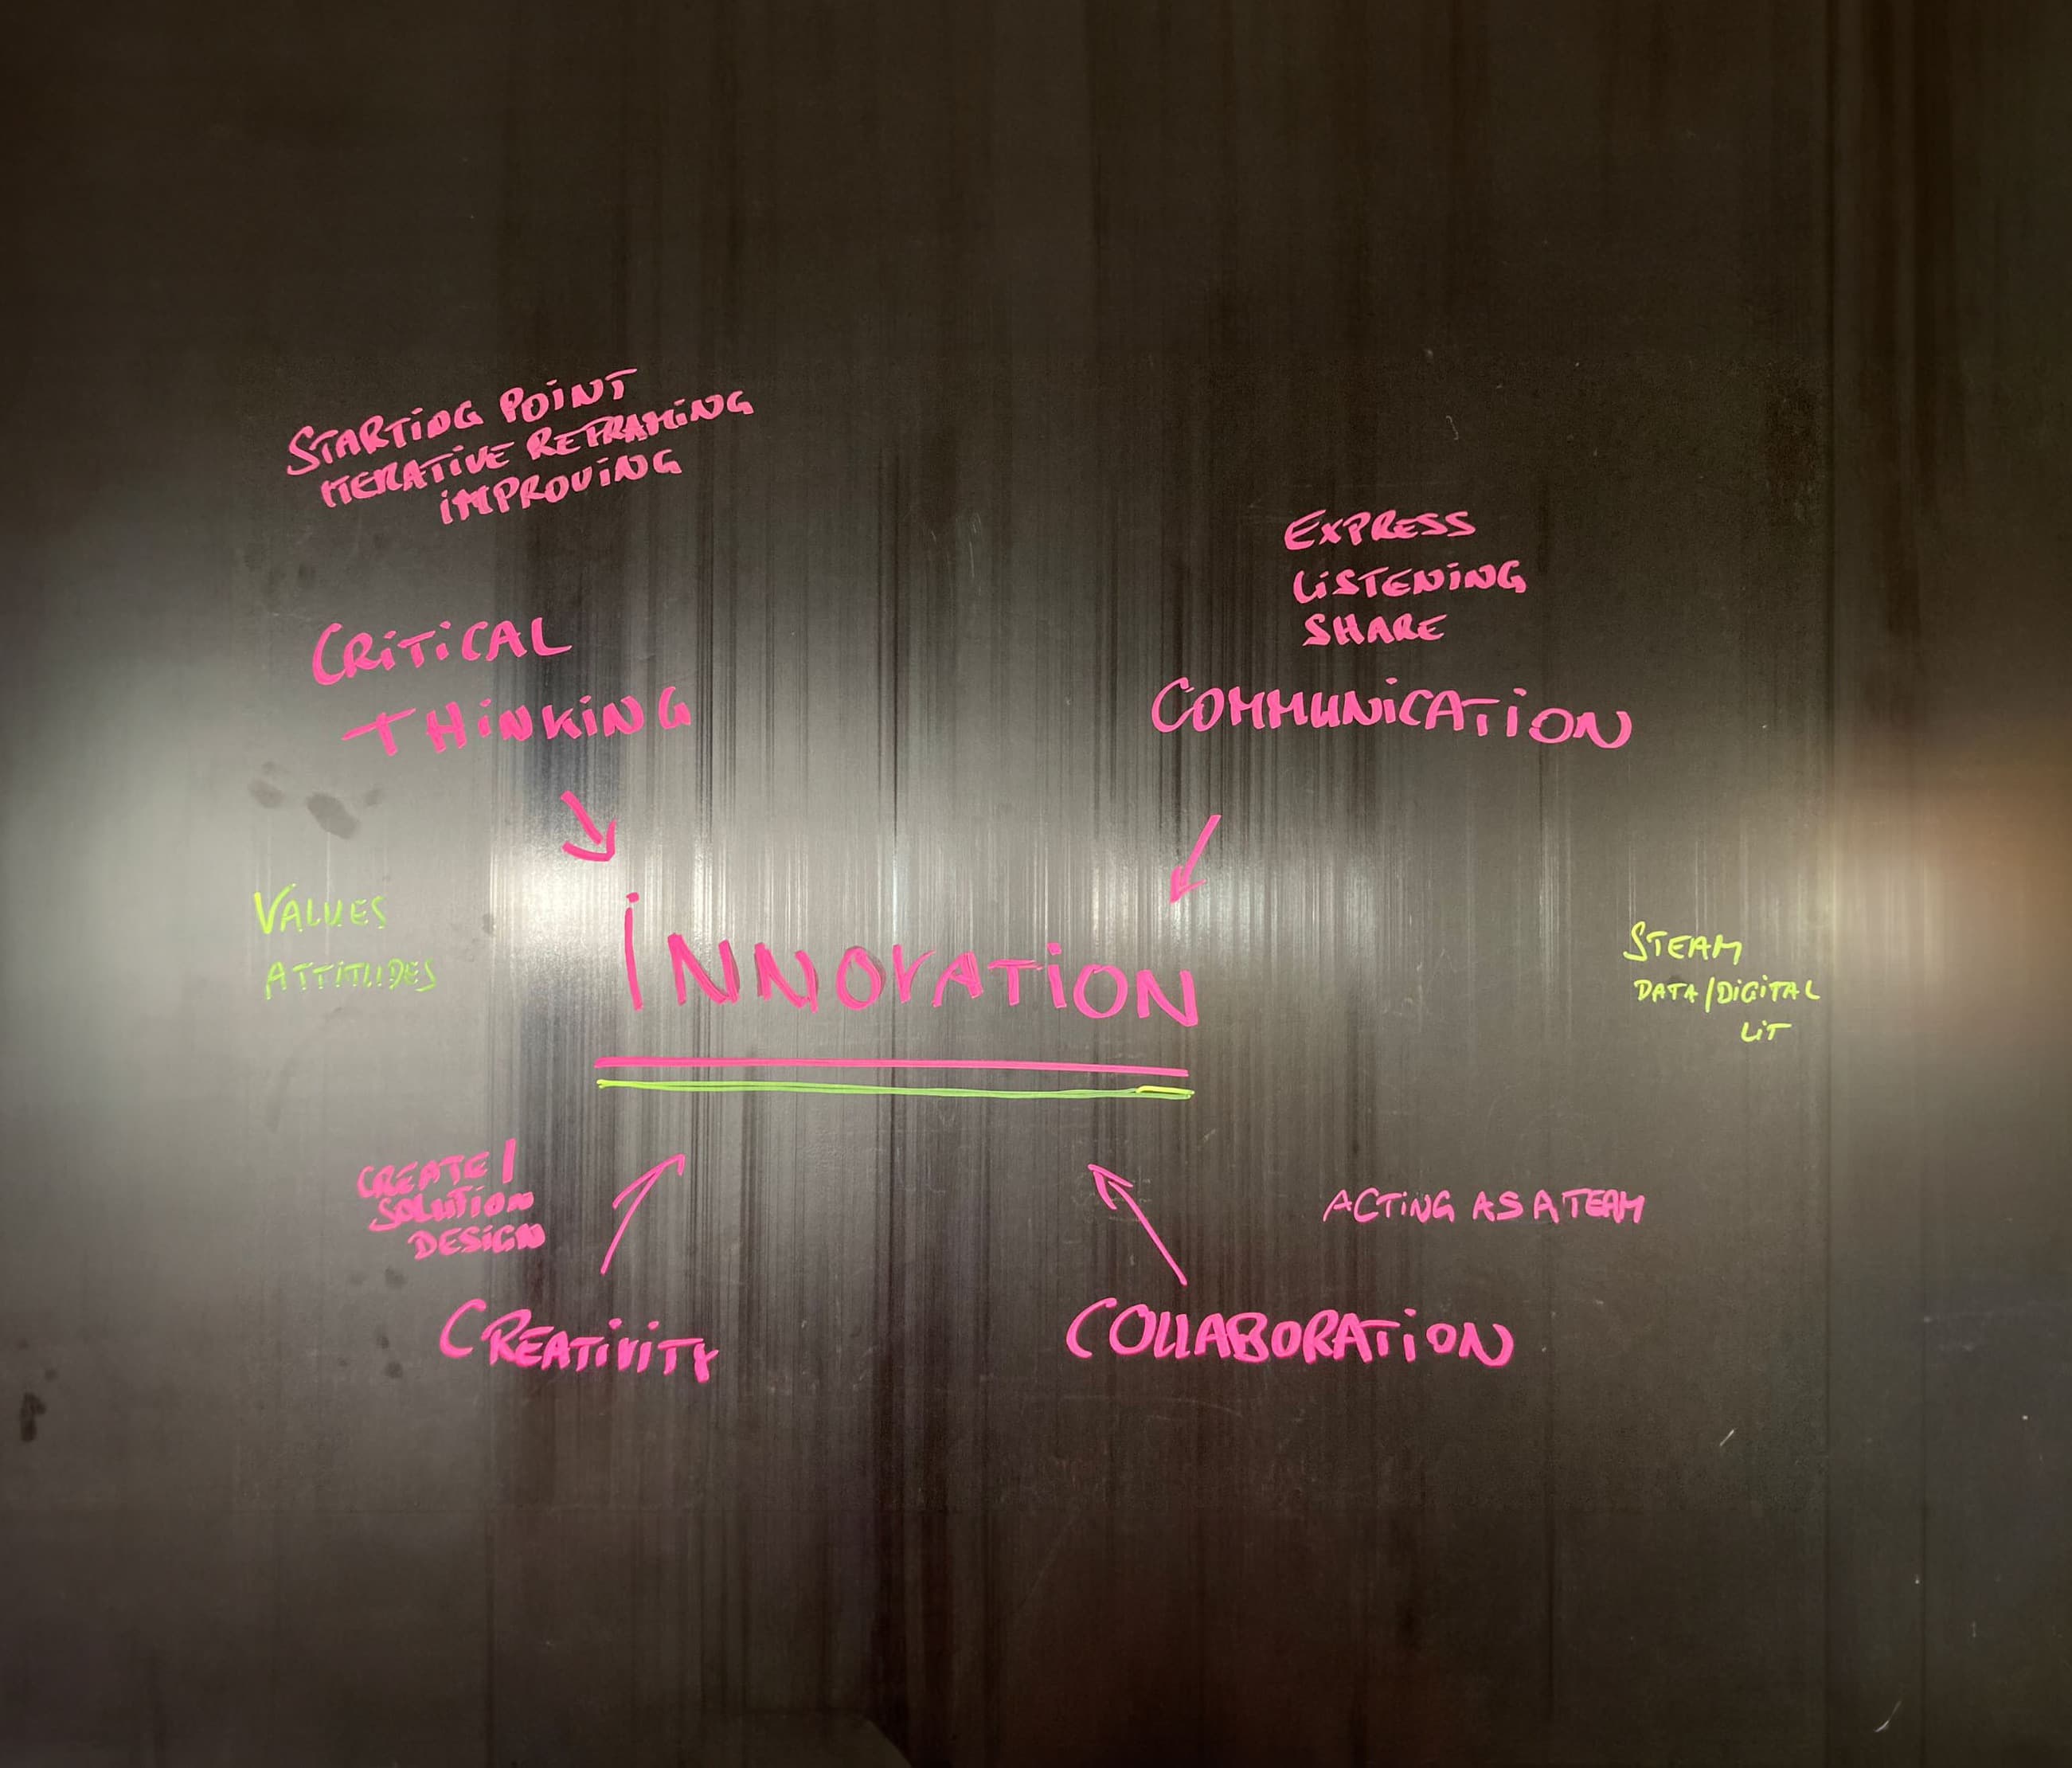 STARTING POINT
ITERATIVE REFRAMING
IMPROVING
CRITICAL
THINKING
EXPRESS
LISTENING
SHARE
COMMUNICATION
VALUES
ATTITUDES
INNOVATION
STEAM
DATA/DIGITAL
LIT
CREATE/
SOLUTION
DESIGN
CREATIVITY
ACTING AS A TEAM
COLLABORATION